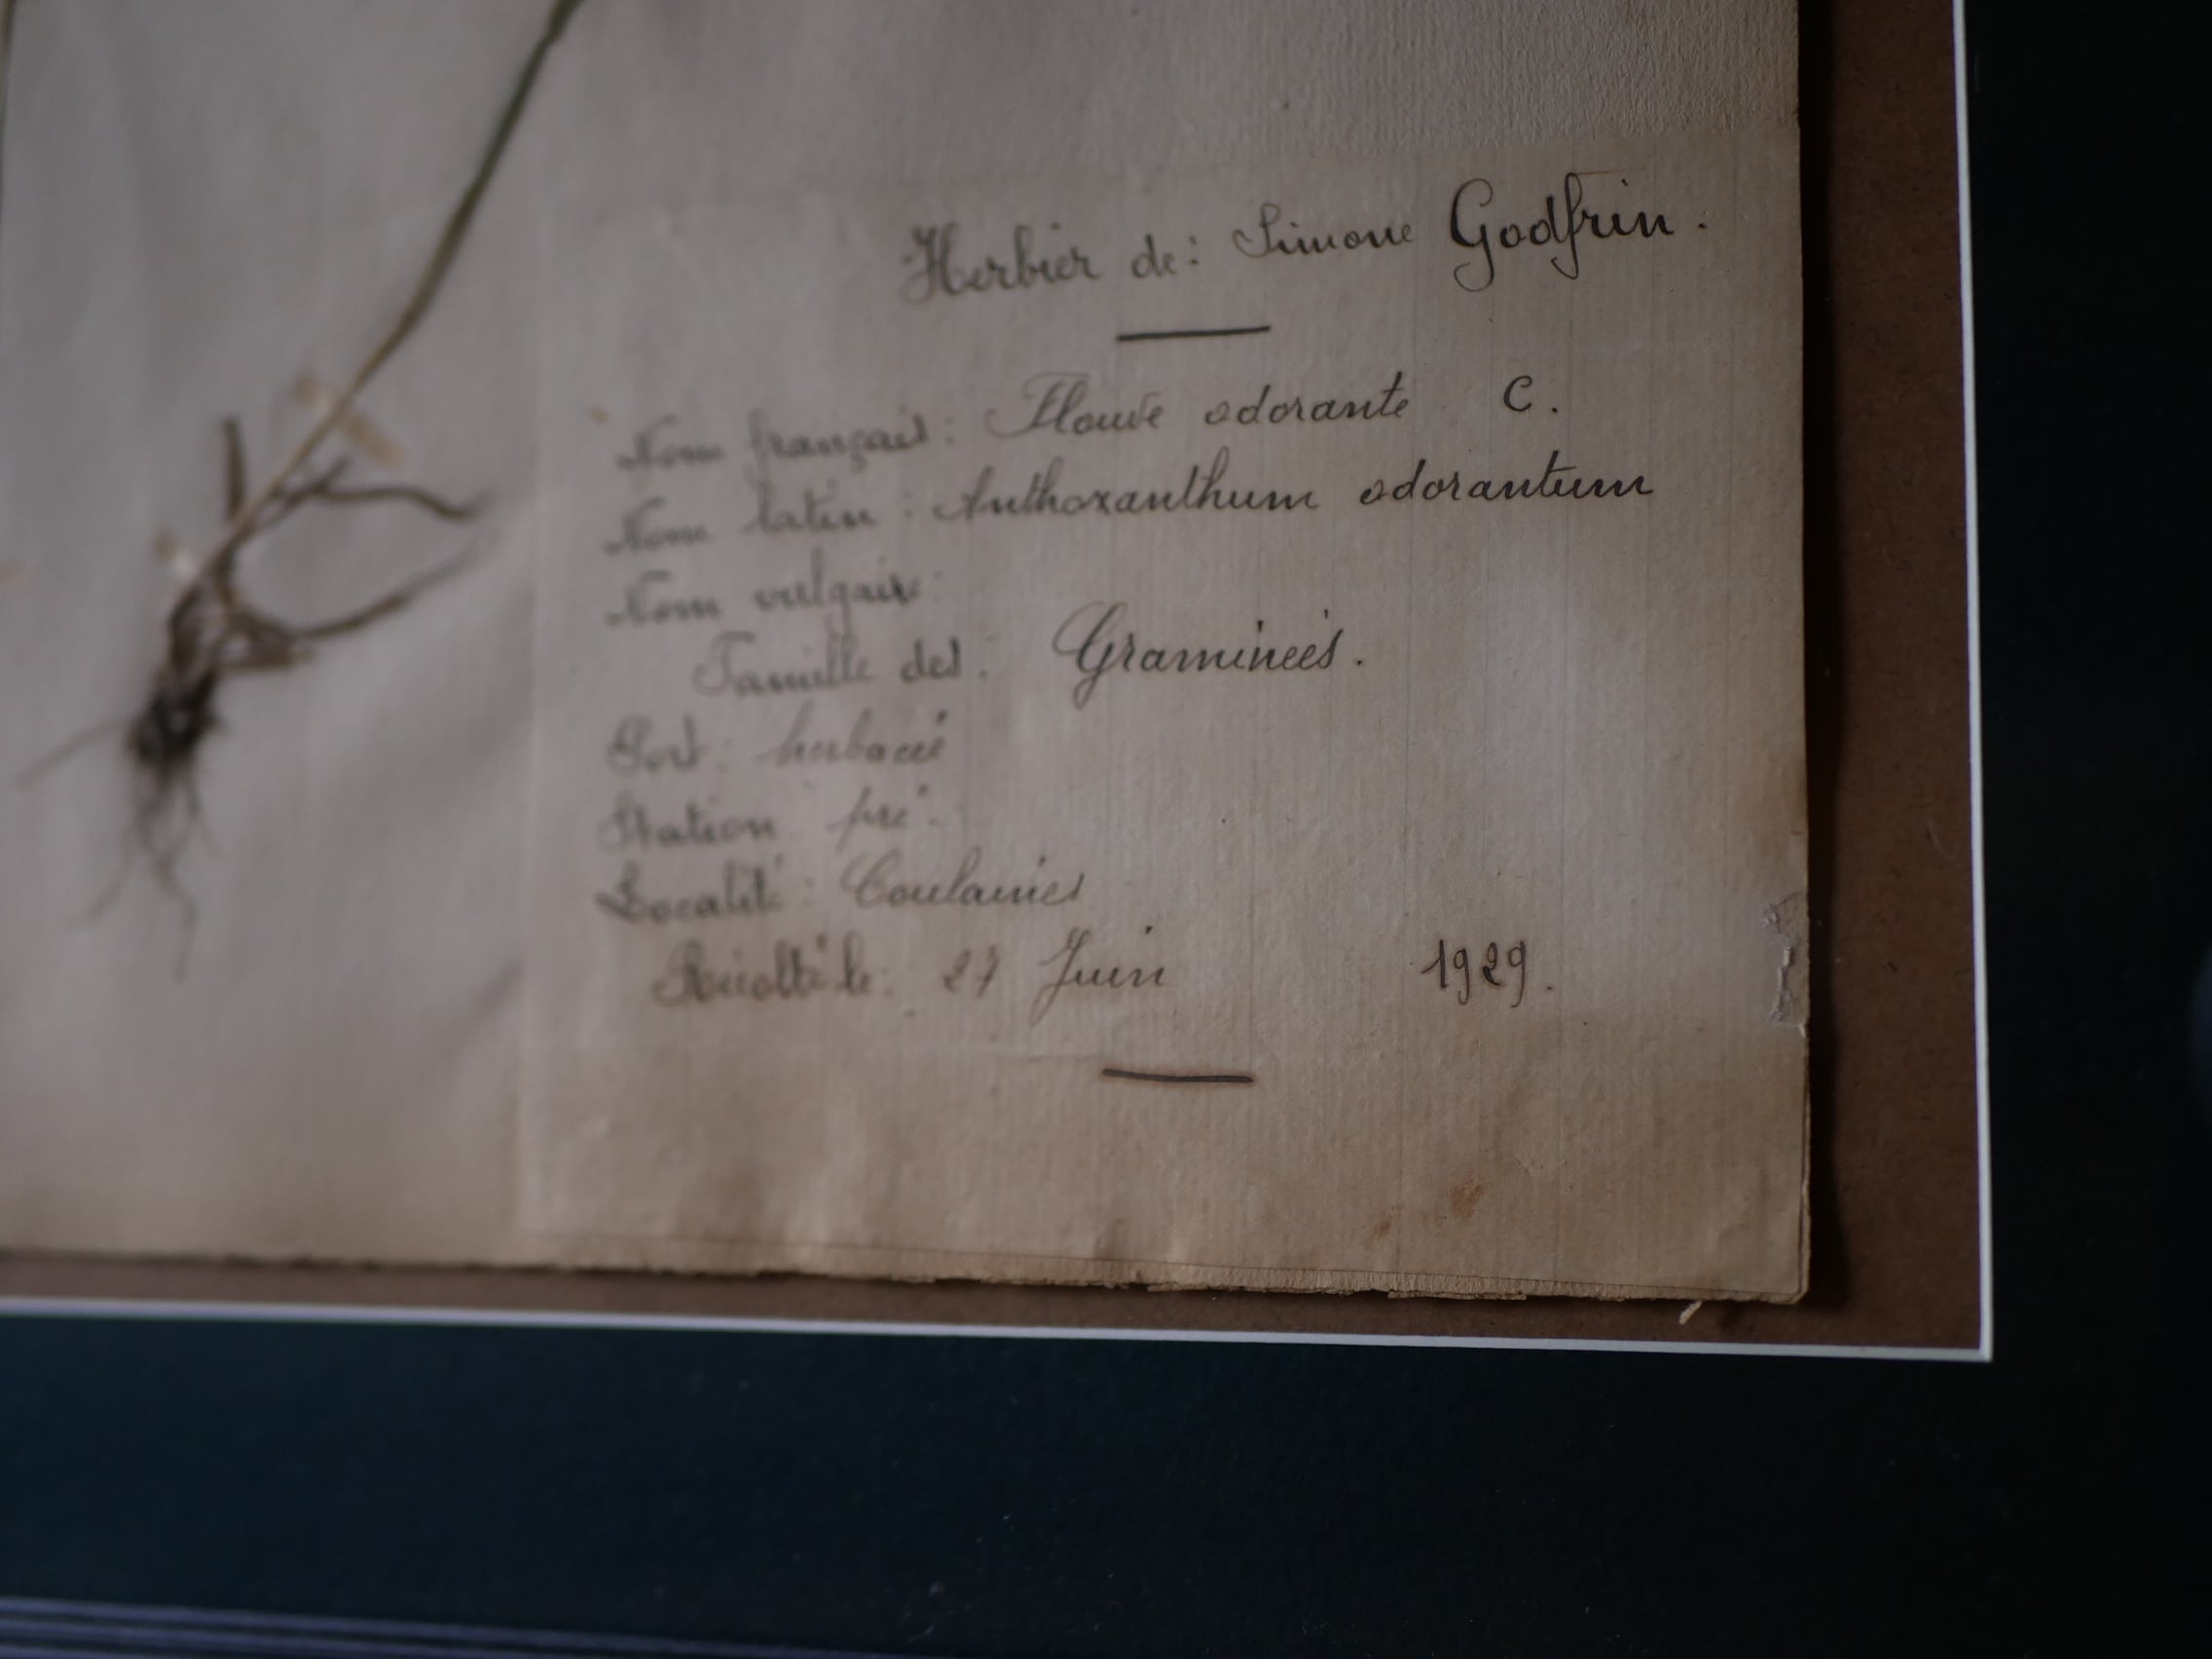 Herbier de : Simone Godfrin.
Nom français : Flouve odorante C.
Nom latin : Anthoxanthum odorantum
Nom vulgaire :
Famille des : Graminées.
Port : herbacé
Station pré.
Localité : Coulaines
Récolté le : 27 Juin 1929.